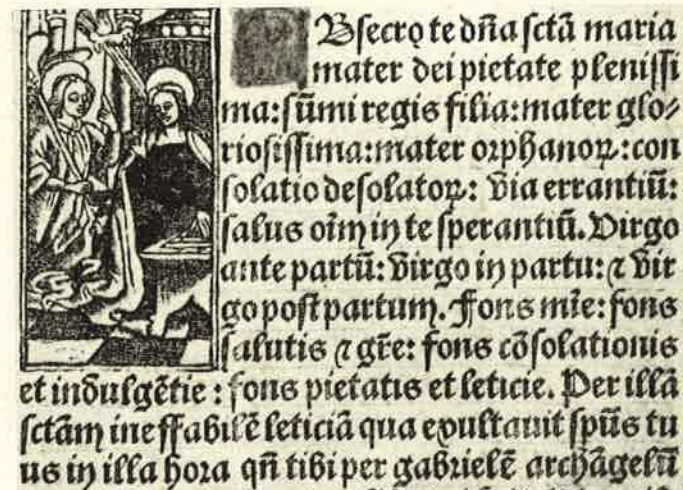 OBsecro te dña sctã maria
mater dei pietate plenissi
ma:sũmi regis filia:mater glo⸗
riosissima:mater orphanoꝝ:con
solatio desolatoꝝ: via errantiũ:
salus oĩm in te sperantiũ. Virgo
ante partũ: virgo in partu: ⁊ vir
go post partum. Fons mĩe: fons
salutis ⁊ grẽ: fons cõsolationis
et indulgẽtie: fons pietatis et leticie. Per illã
sctãm ineffabilẽ leticiã qua exultauit spũs tu
us in illa hora qñ tibi per gabrielẽ archãgelũ